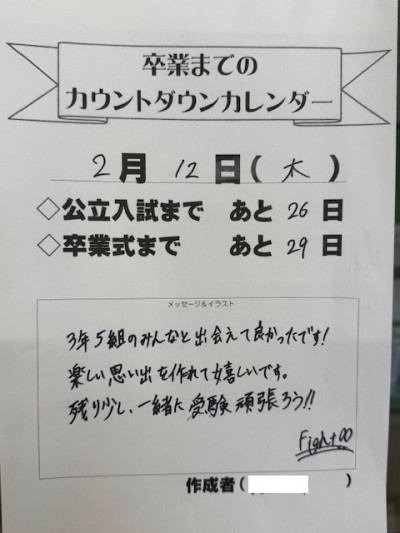 卒業までの
カウントダウンカレンダー
2月12日(木)
◇公立入試まで あと26日
◇卒業式まで あと29日
メッセージ&イラスト
3年5組のみんなと出会えて良かったです!
楽しい思い出を作れて嬉しいです。
残り少し、一緒に受験頑張ろう!!
Fight∞
作成者( )